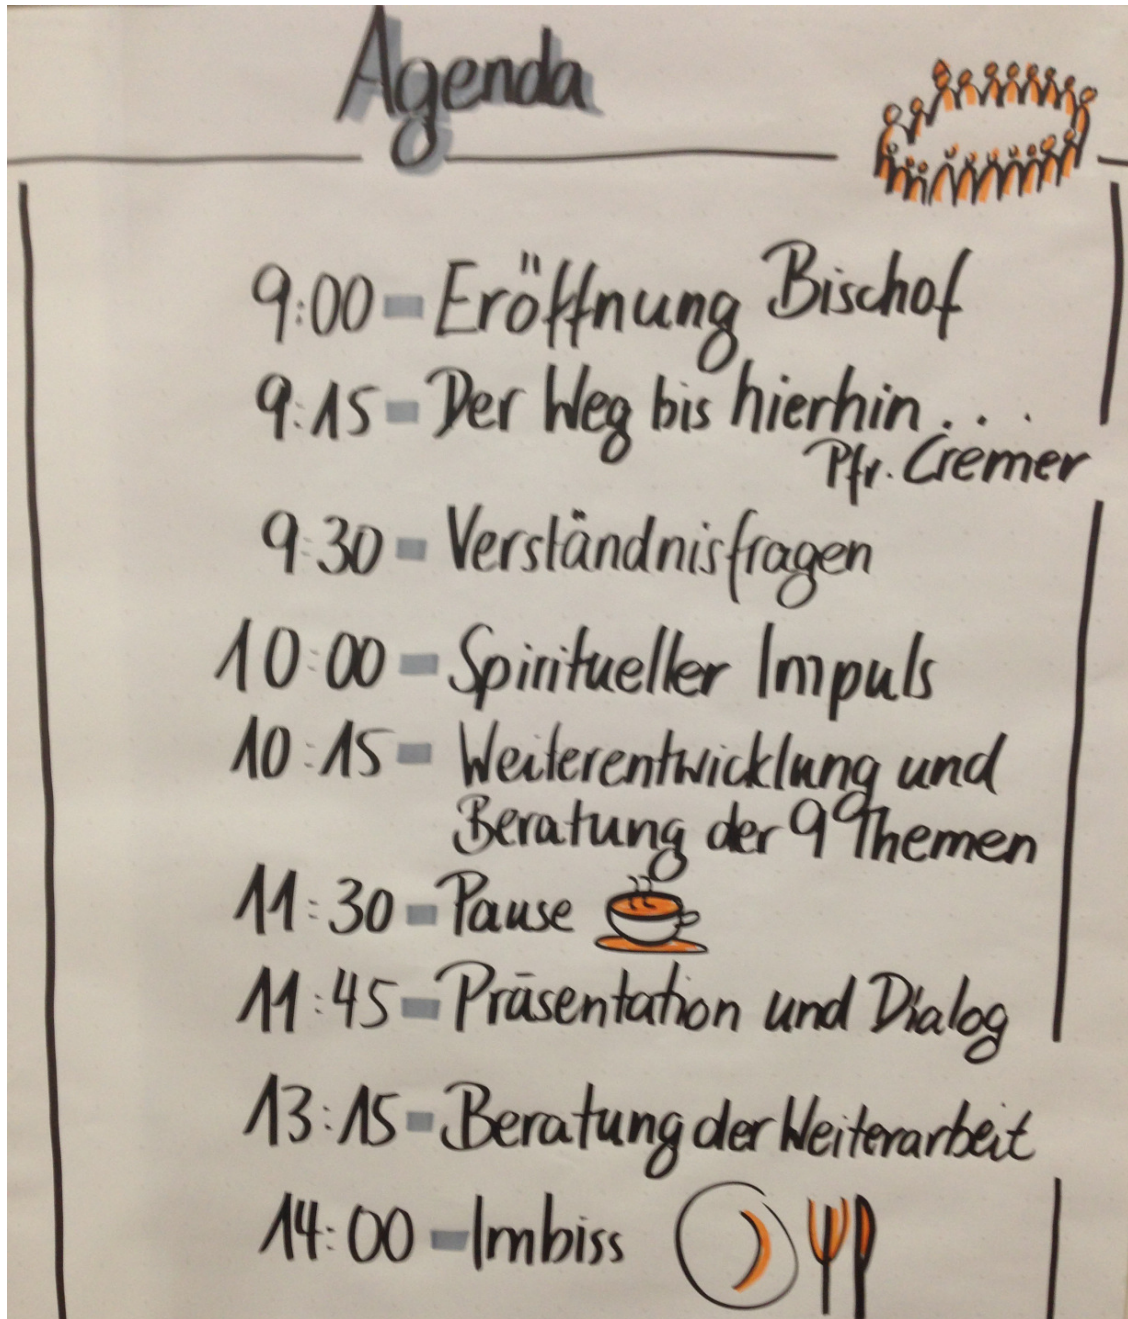 Agenda
9:00 - Eröffnung Bischof
9:15 - Der Weg bis hierhin...
Pfr. Cremer
9:30 - Verständnisfragen
10:00 - Spiritueller Impuls
10:15 - Weiterentwicklung und
Beratung der 9 Themen
11:30 - Pause
11:45 - Präsentation und Dialog
13:15 - Beratung der Weiterarbeit
14:00 - Imbiss